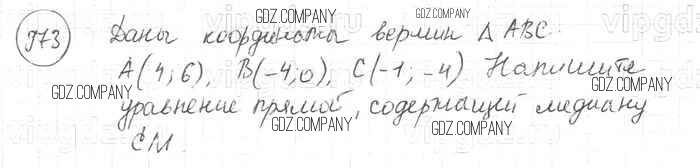 973 Даны координаты вершин Δ ABC.
A(4; 6), B(-4; 0), C(-1; -4) Напишите
уравнение прямой, содержащей медиану
CM.
GDZ.COMPANY
GDZ.COMPANY
GDZ.COMPANY
GDZ.COMPANY
GDZ.COMPANY